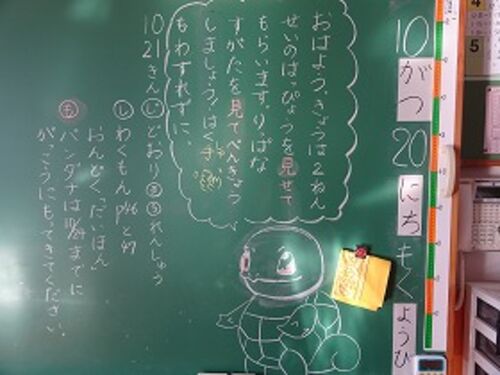 10がつ20にちもくようび
おはよう。きょうは2ねん
せいのはっぴょうを見せて
もらいます。りっぱな
すがたを見てべんきょう
しましょう!はく手
もわすれずに。
10/21きん
し どおり
れんしゅう
し わくもんP46と47
おんどく「だいほん」
も バンダナは10/24までに
がっこうにもってきてください。
4
5